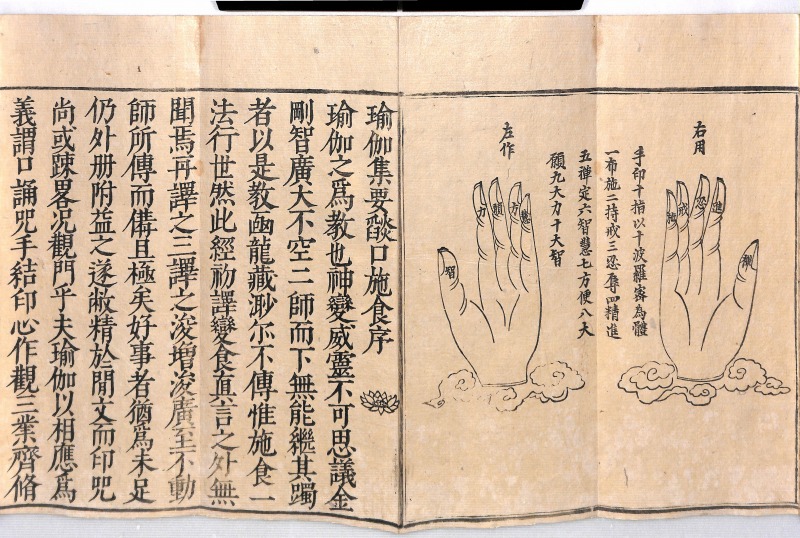 右用
禪
進
忍
戒
手印十指以十波羅宻為體
一布施二持戒三忍辱四精進
五禪定六智慧七方便八大
願九大力十大智
左作
慧
方
願
力
智
瑜伽集要燄口施食序
瑜伽之爲教也神變威靈不可思議金
剛智廣大不空二師而下無能繼其躅
者以是教凾龍藏渺尔不傳惟施食一
法行世然此經初譯變食真言之外無
聞焉再譯之三譯之浚增浚廣至不動
師所傳而備且極矣好事者猶爲未足
仍外册附益之遂敝精於閒文而印呪
尚或踈畧况觀門乎夫瑜伽以相應爲
義謂口誦咒手結印心作觀三業齊脩